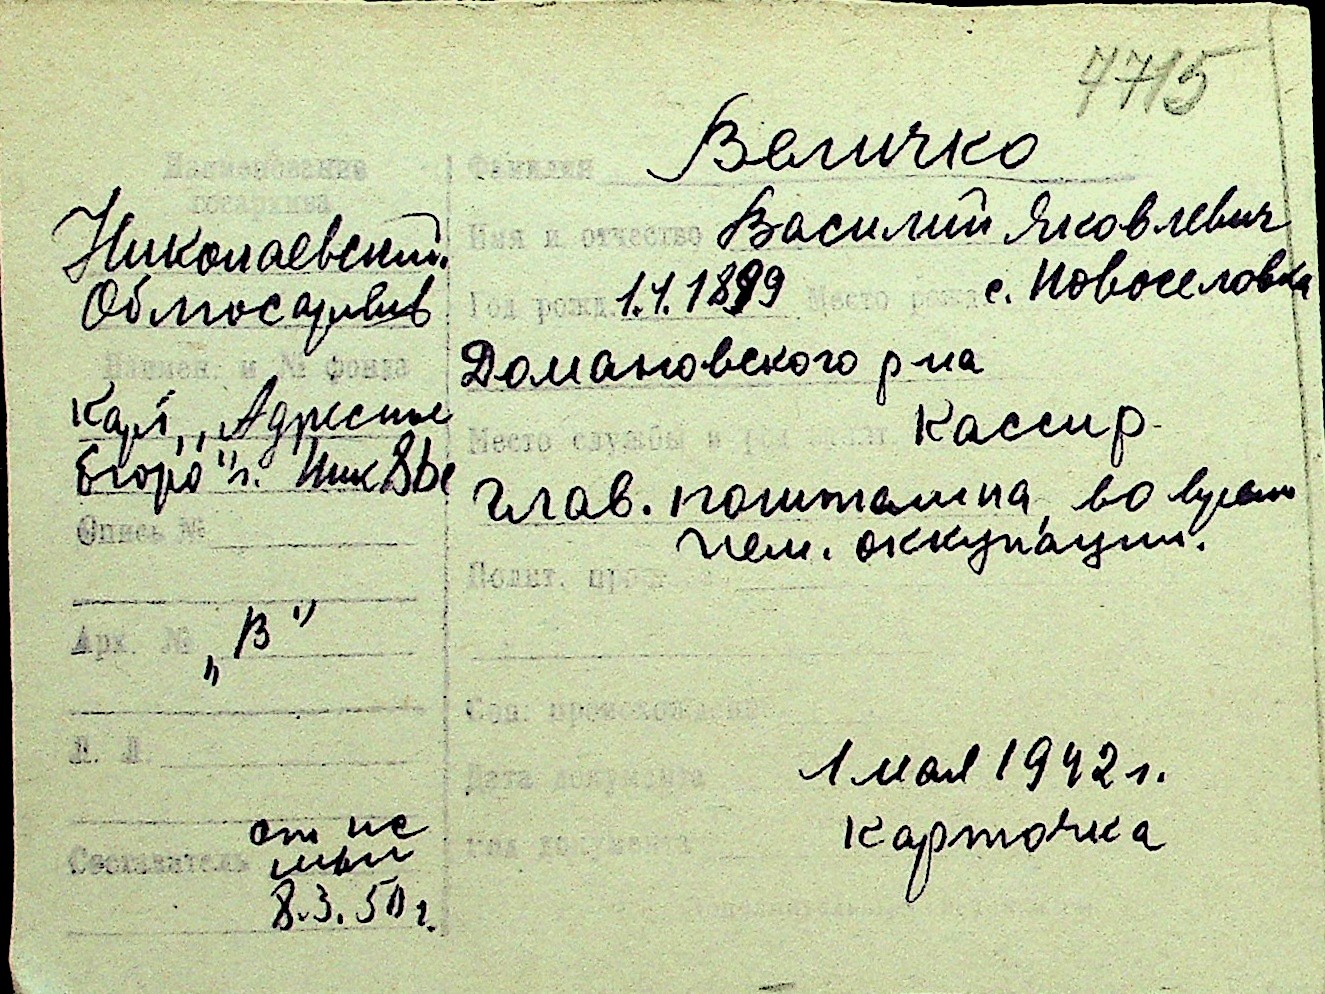 4715
Наименование госархива
Николаевский
Облгосархив
Наимен. и № фонда
Карт. „Адресное
бюро" г.
Опись №
Арх. № „В"
Л. Л.
Составитель
8.3.50 г.
Фамилия Величко
Имя и отчество Василий Яковлевич
Год рожд. 1.1.1899 Место рожд. с. Новоселовка
Домановского р-на
Место службы и Кассир
глав. почтамта, во время
нем. оккупации.
Полит.
Соц. происхождение
Дата документа 1 мая 1942 г.
Вид документа Карточка